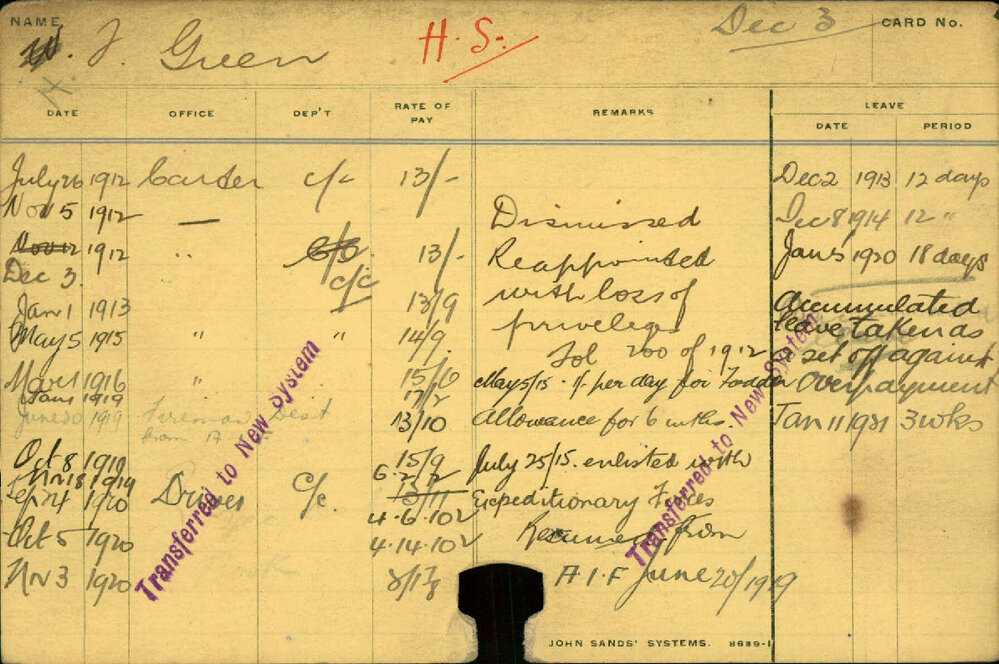 NAME
W. J. Green
H. S.
Dec 3
CARD No.
DATE OFFICE DEP'T RATE OF PAY REMARKS LEAVE
DATE PERIOD
July 26 1912 Carter c/c 13/-
Nov 5 1912 — Dismissed
Nov 12 1912 " C/O 13/- Reappointed
Dec 3. c/c with loss of
Jan 1 1913 13/9 privileges
May 5 1915 " " 14/9. Fol 200 of 1912
Mar 1 1916 " 15/6 May 5/15. 1/- per day for Fodder
Jan 1 1919 17/2
June 20 1919 Fireman Dist 13/10 Allowance for 6 mths.
from A I F
Oct 8 1919 15/9 July 25/15. enlisted with
Nov 18 1919 6. 2
Sep 24 1920 Driver C/c. 15/11 Expeditionary Forces
4.6.10½
Oct 5 1920 4.14.10½ Resumed from
Nov 3 1920 A.I.F June 20/1919
Dec 2 1913 12 days
Dec 8 1914 12 "
Jan 5 1920 18 days
Accumulated
leave taken as
a set off against
overpayment
Jan 11 1921 3 wks
Transferred to New System
Transferred to New System
JOHN SANDS' SYSTEMS. 8689-1